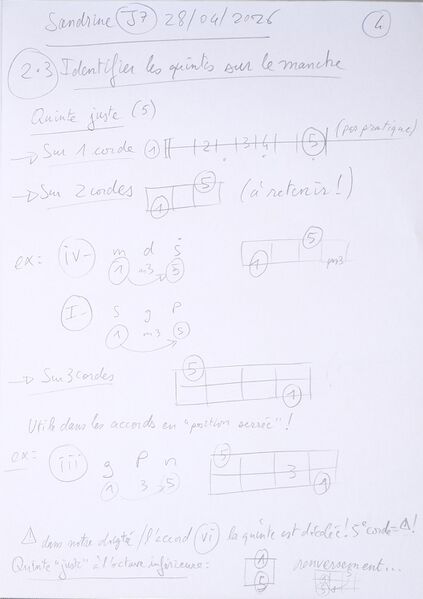 Sandrine J7 28/04/2026 4
2.3 Identifier les quintes sur le manche
Quinte juste (5)
→ Sur 1 corde 1 2 3 4 5 (pas pratique)
→ Sur 2 cordes 1 5 (à retenir!)
ex: iv- m d s 1 5
1 m3 5 m3
I- s g p
1 m3 5
→ Sur 3 cordes 5 1
Utile dans les accords en "position serrée"!
ex: iii g p n 5
1 3 5 3 1
⚠ dans notre / l'accord vi la quinte est décalée! 5° corde = ⚠!
Quinte "juste" à l'octave inférieure: 1 5 renversement...